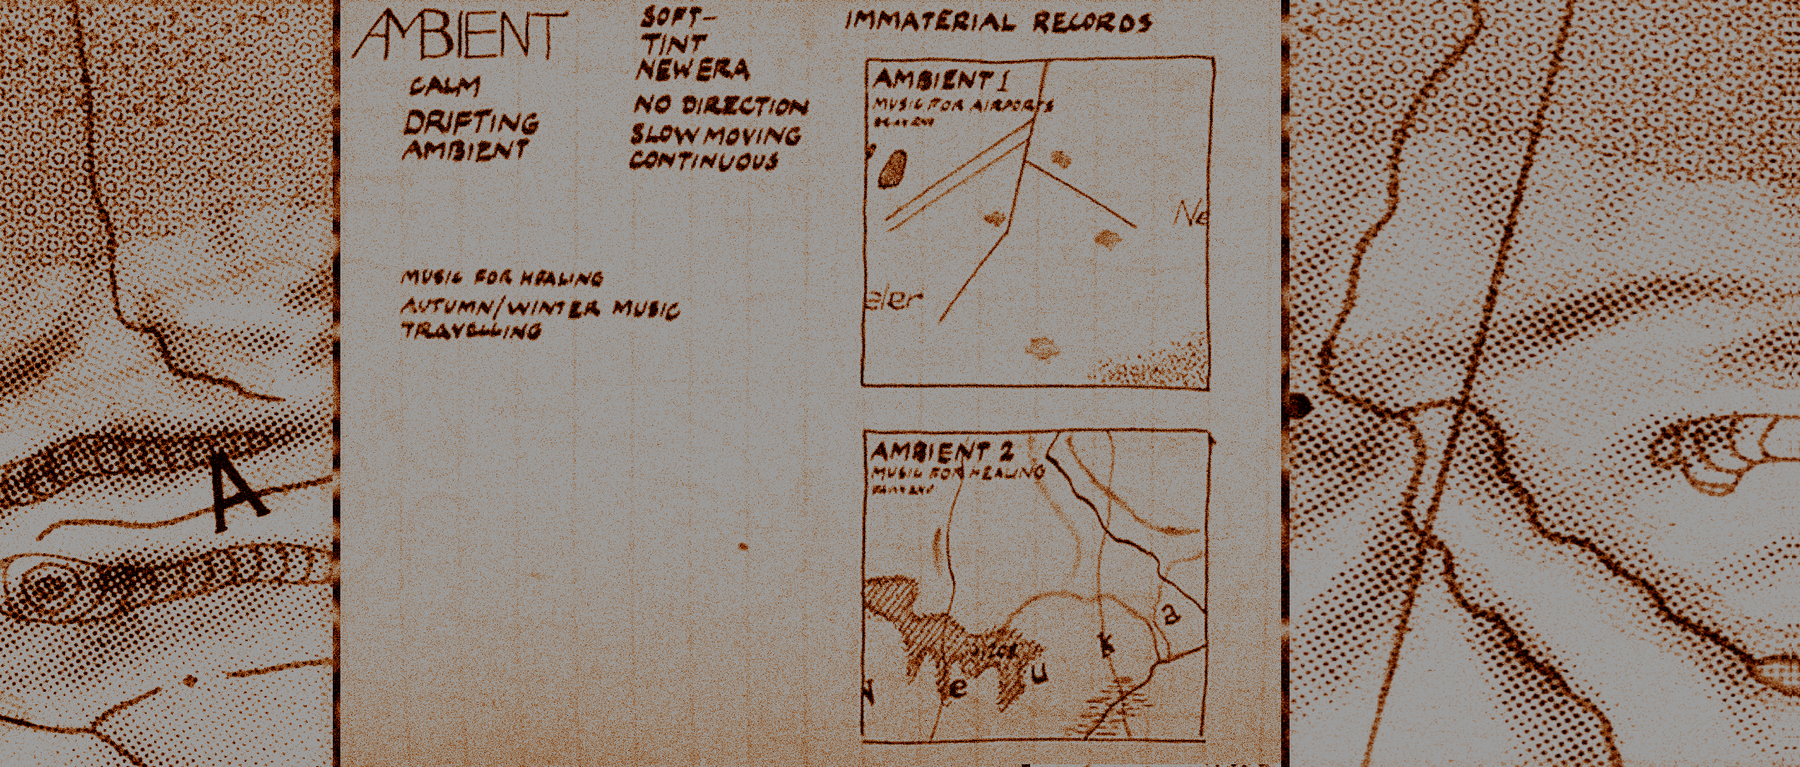 AMBIENT
CALM
DRIFTING
AMBIENT
SOFT-
TINT
NEW ERA
NO DIRECTION
SLOW MOVING
CONTINUOUS
MUSIC FOR HEALING
AUTUMN/WINTER MUSIC
TRAVELLING
IMMATERIAL RECORDS
AMBIENT 1
MUSIC FOR AIRPORTS
Ne
eler
AMBIENT 2
MUSIC FOR HEALING
a
k
u
e
A